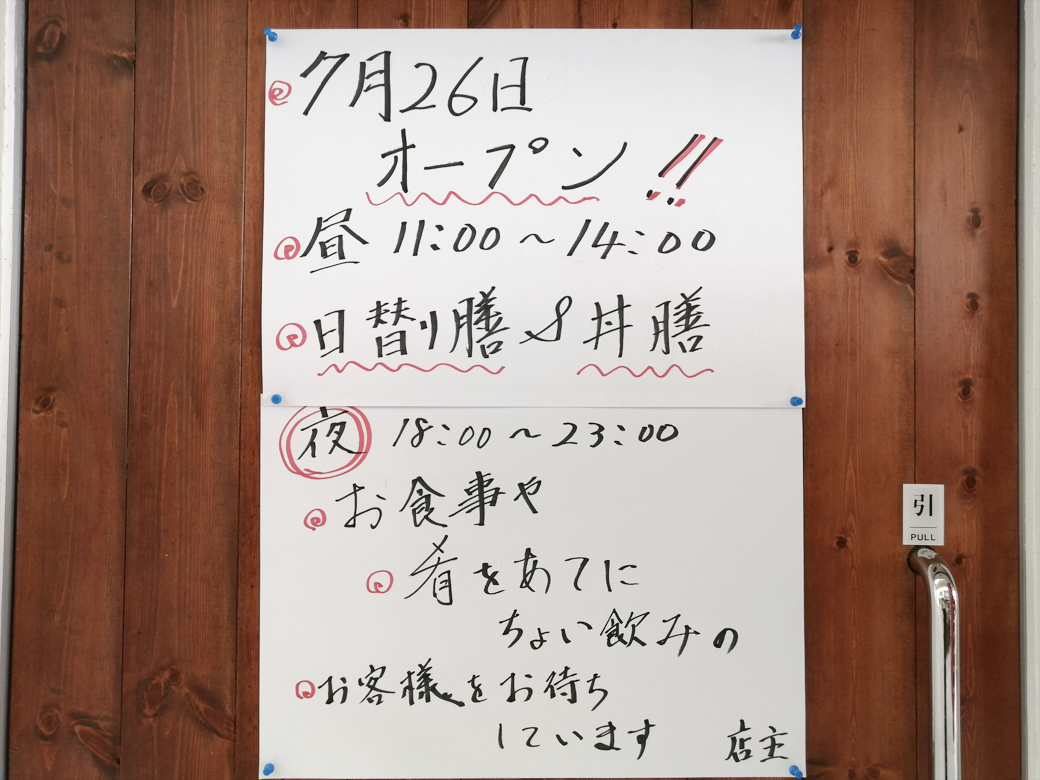 7月26日
オープン!!
昼 11:00~14:00
日替り膳&丼膳
夜 18:00~23:00
お食事や
肴をあてに
ちょい飲みの
お客様をお待ち
しています 店主
引
PULL